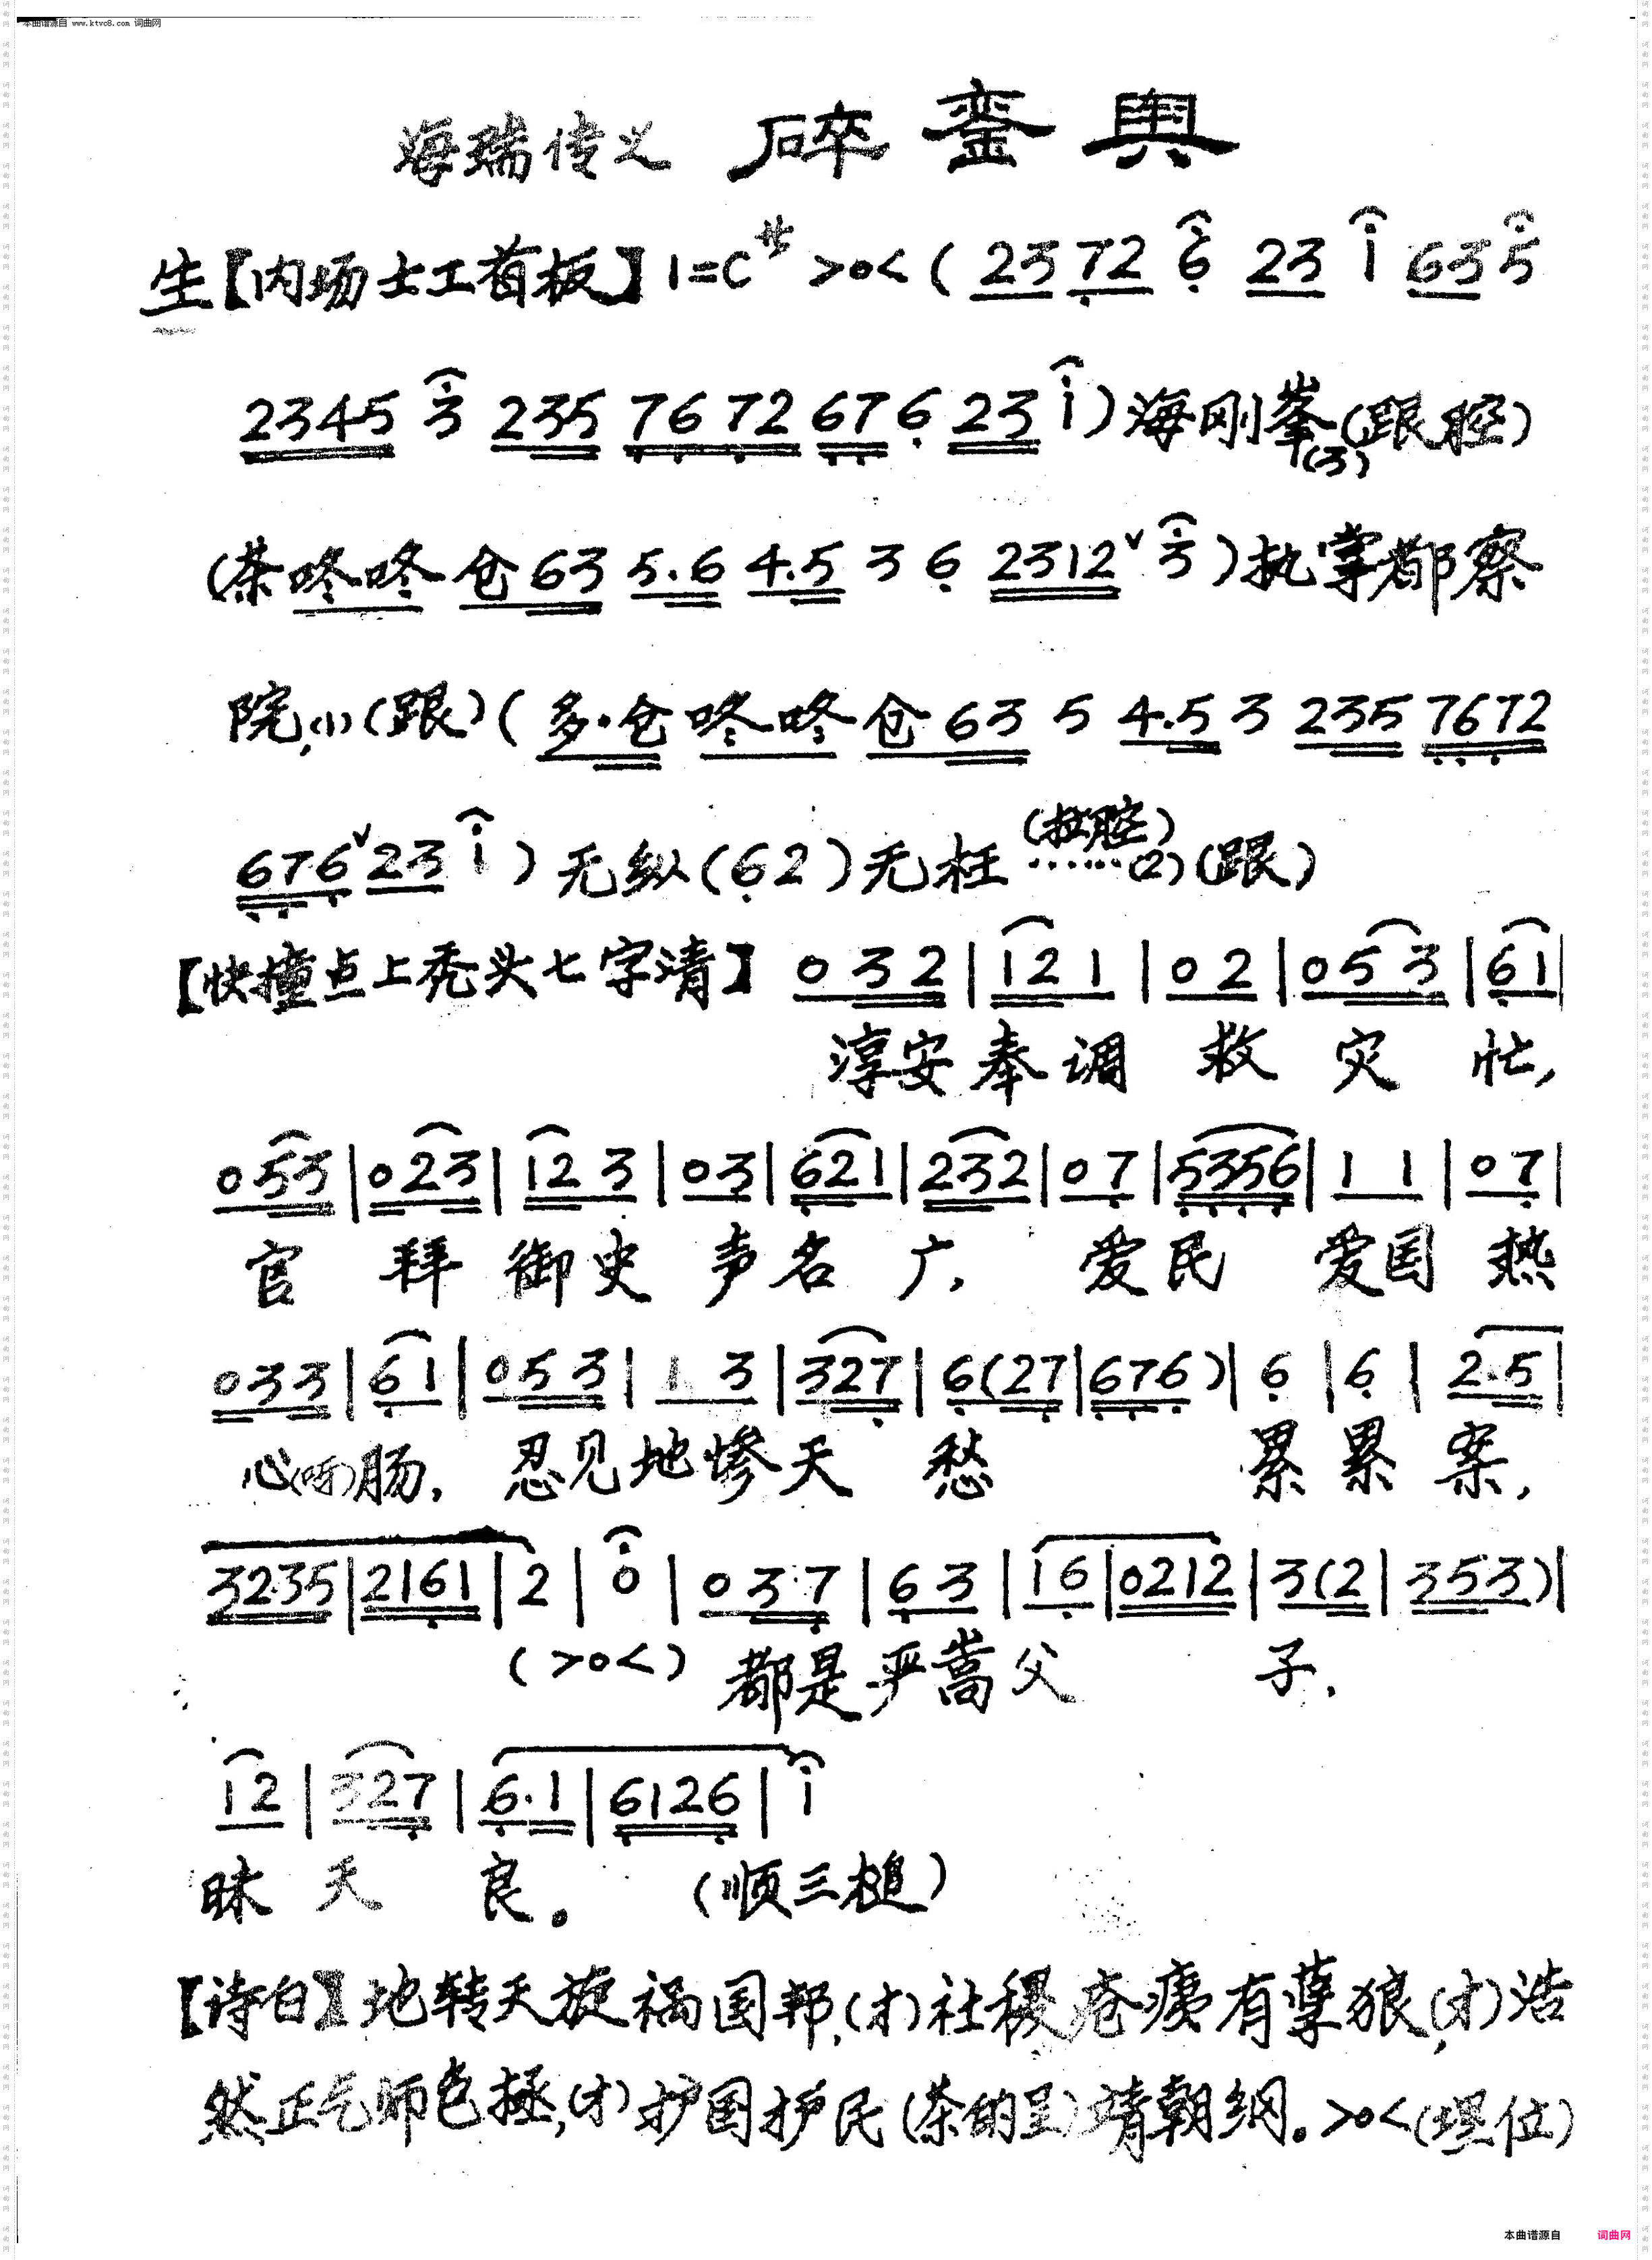 本曲谱源自 www.ktvc8.com 词曲网
海瑞传义 碎銮舆
生【内场士工首板】1=C サ >o< ( 23 72 6 23 i 63 5
2345 3 235 76 72 67 6 23 i ) 海刚峯(3)(跟腔)
(茶咚咚 仓63 5.6 4.5 3 6 2312 ˇ 3 ) 执掌都察
院,(1)(跟)(多·仓 咚咚 仓63 5 4.5 3 235 7672
676 ˇ 23 i ) 无纵(62)无枉(拉腔)……(2)(跟)
【快撞点上秃头七字清】 0 32 | 12 1 | 0 2 | 0 53 | 61 |
淳安奉调 救 灾 忙,
053 | 023 | 12 3 | 03 | 621 | 232 | 07 | 5356 | 1 1 | 07 |
官 拜 御史 声名 广, 爱民 爱国 热
033 | 61 | 053 | 1 3 | 327 | 6(27 | 676) | 6 | 6 | 2.5 |
心(呀)肠, 忍见地惨天 愁 累 累 案,
3235 | 2161 | 2 | 0 | 037 | 63 | 16 | 0212 | 3(2 | 353) |
(>o<) 都是严嵩父 子,
12 | 327 | 6.1 | 6126 | i
昧 天 良。 (顺三槌)
【诗白】地转天旋祸国邦,(才)社稷疮痍有孽狼,(才)浩
然正气师包拯,(才)护国护民(茶的呈)靖朝纲。>o<(埋位)
本曲谱源自 词曲网